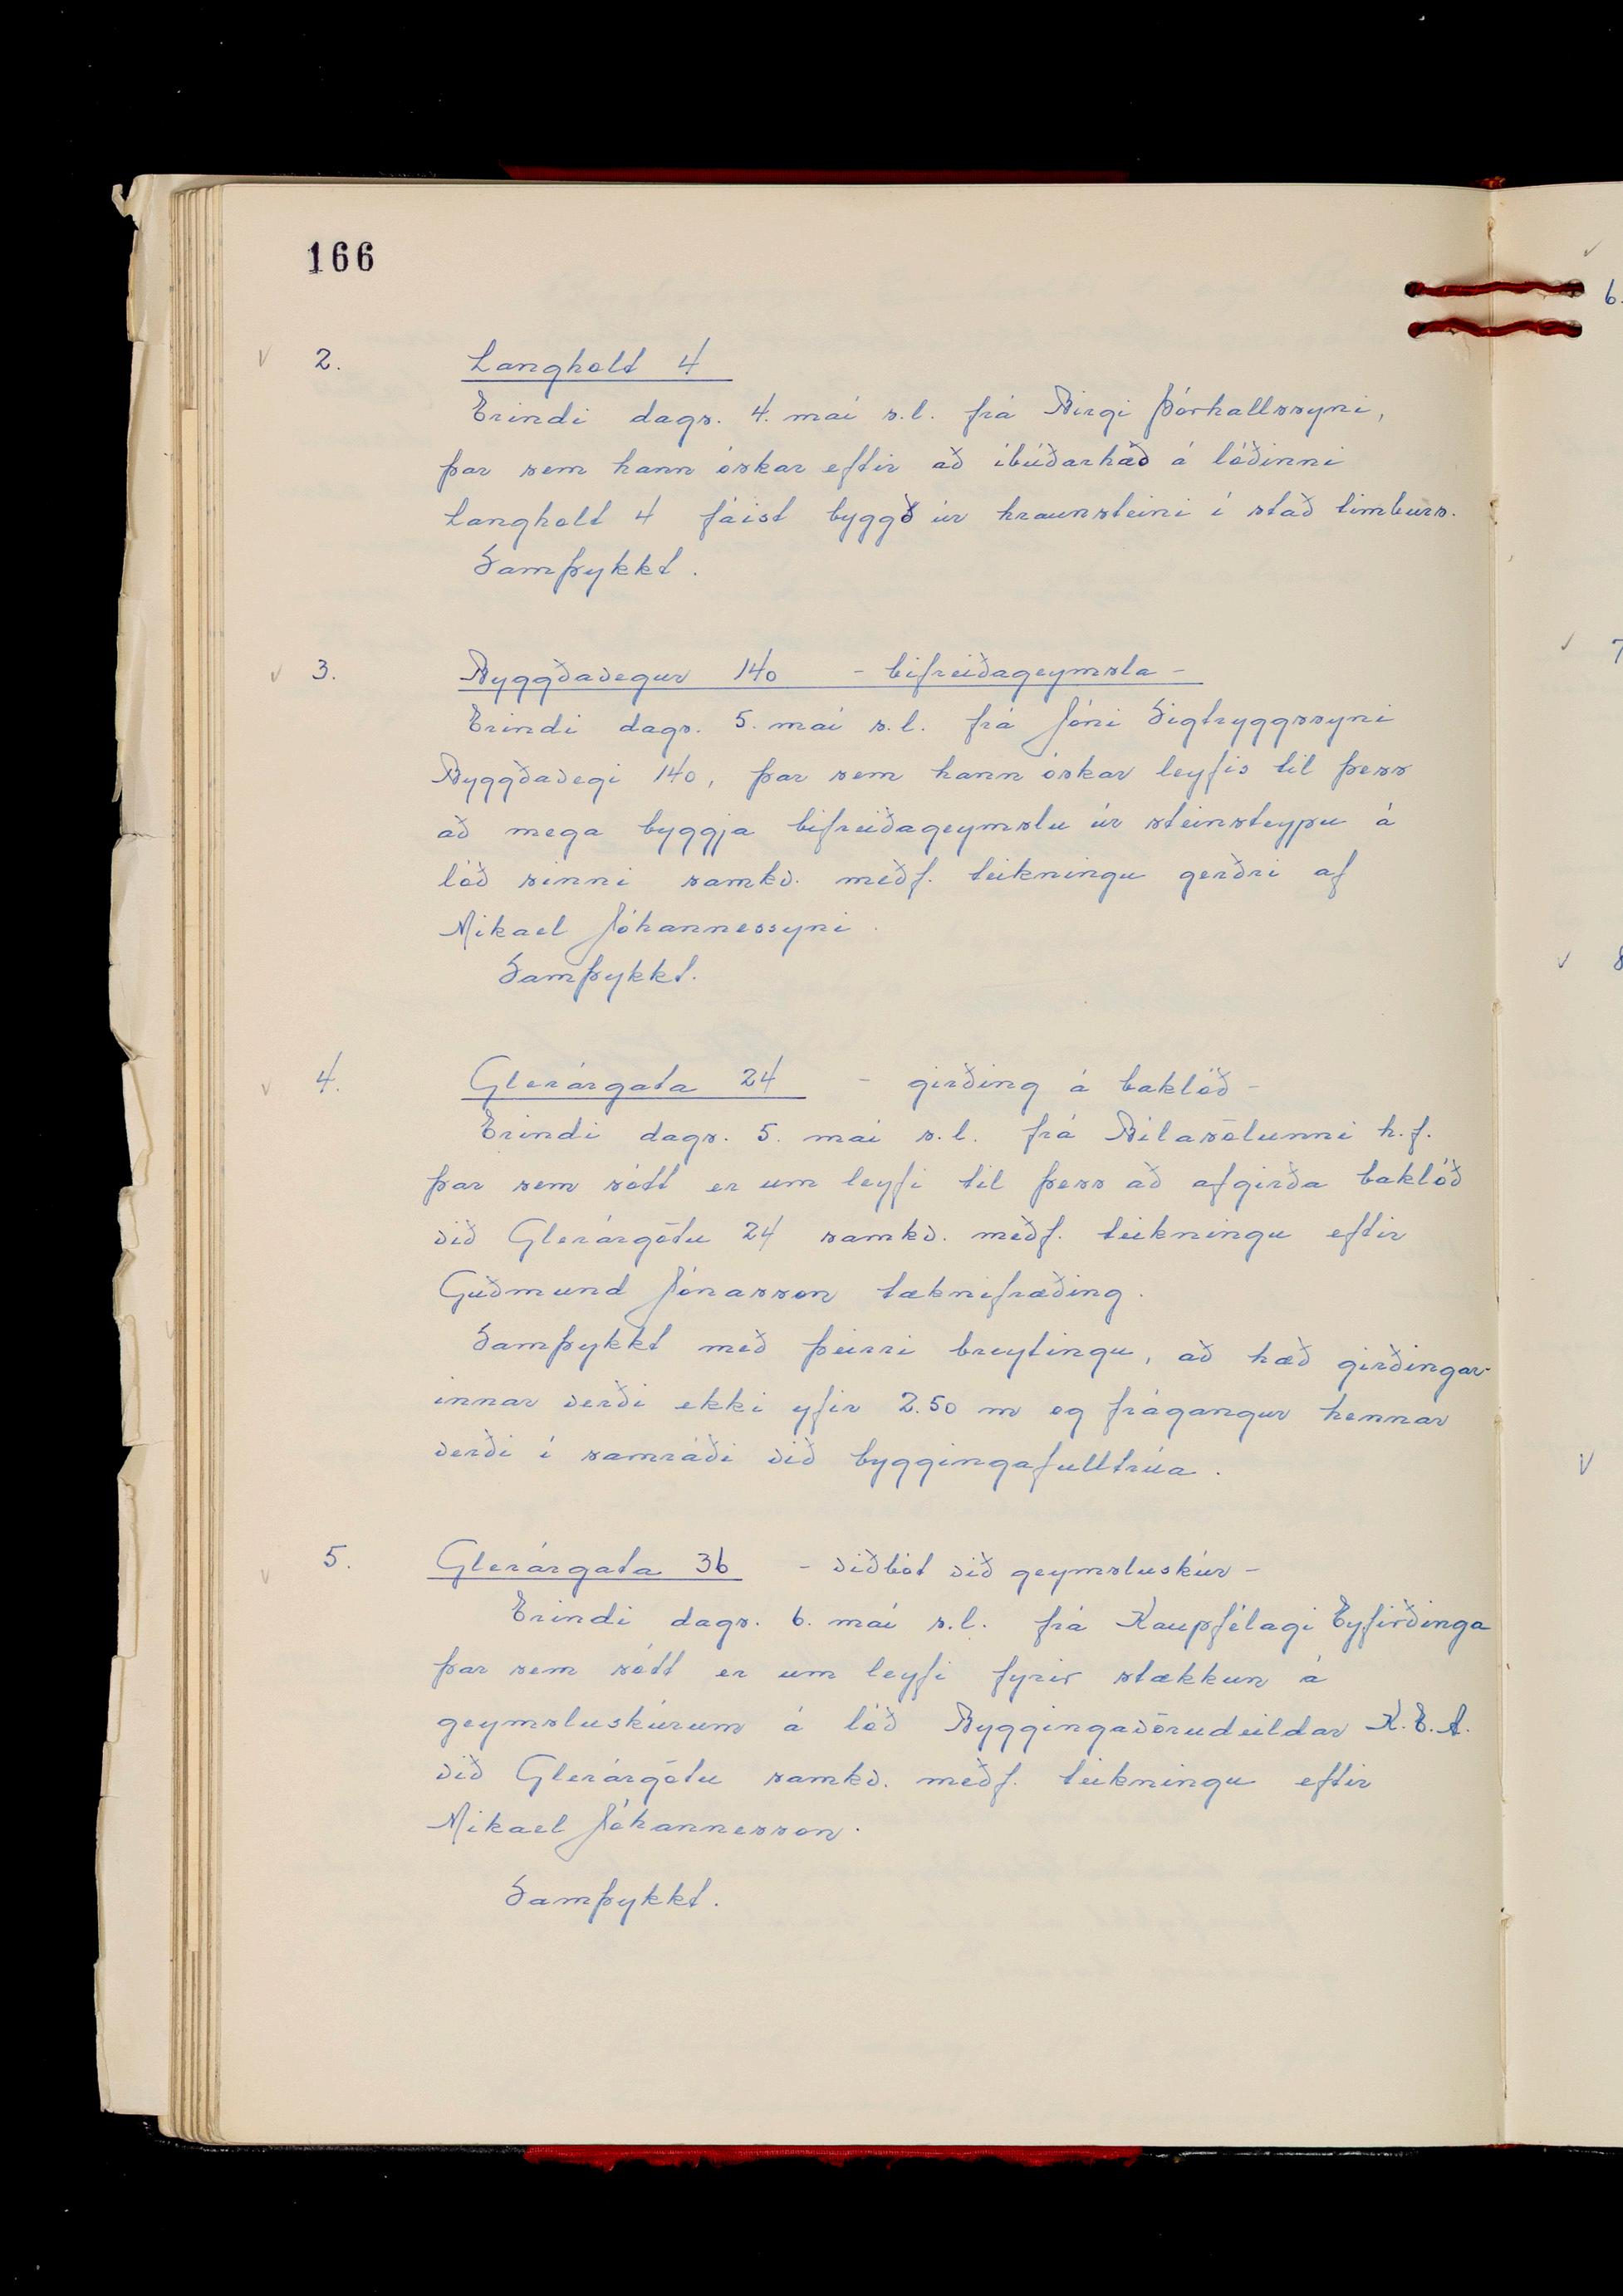 166
✓ 2. Langholt 4
Erindi dags. 4. maí s.l. frá Birgi Þórhallssyni,
þar sem hann óskar eftir að íbúðarhæð á lóðinni
Langholt 4 fáist byggð úr hraunsteini í stað timburs.
Samþykkt.
✓ 3. Byggðavegur 140 - bifreiðageymsla -
Erindi dags. 5. maí s.l. frá Jóni Sigtryggssyni
Byggðavegi 140, þar sem hann óskar leyfis til þess
að mega byggja bifreiðageymslu úr steinsteypu á
lóð sinni samkv. meðf. teikningu gerðri af
Mikael Jóhannessyni.
Samþykkt.
✓ 4. Glerárgata 24 - girðing á baklóð -
Erindi dags. 5. maí s.l. frá Bílasölunni h.f.
þar sem sótt er um leyfi til þess að afgirða baklóð
við Glerárgötu 24 samkv. meðf. teikningu eftir
Guðmund Jónasson tæknifræðing.
Samþykkt með þeirri breytingu, að hæð girðingar-
innar verði ekki yfir 2.50 m og frágangur hennar
verði í samráði við byggingafulltrúa.
✓ 5. Glerárgata 36 - viðbót við geymsluskúr -
Erindi dags. 6. maí s.l. frá Kaupfélagi Eyfirðinga
þar sem sótt er um leyfi fyrir stækkun á
geymsluskúrum á lóð Byggingavörudeildar K.E.A.
við Glerárgötu samkv. meðf. teikningu eftir
Mikael Jóhannesson.
Samþykkt.
✓
6.
✓ 7
✓ 8
✓